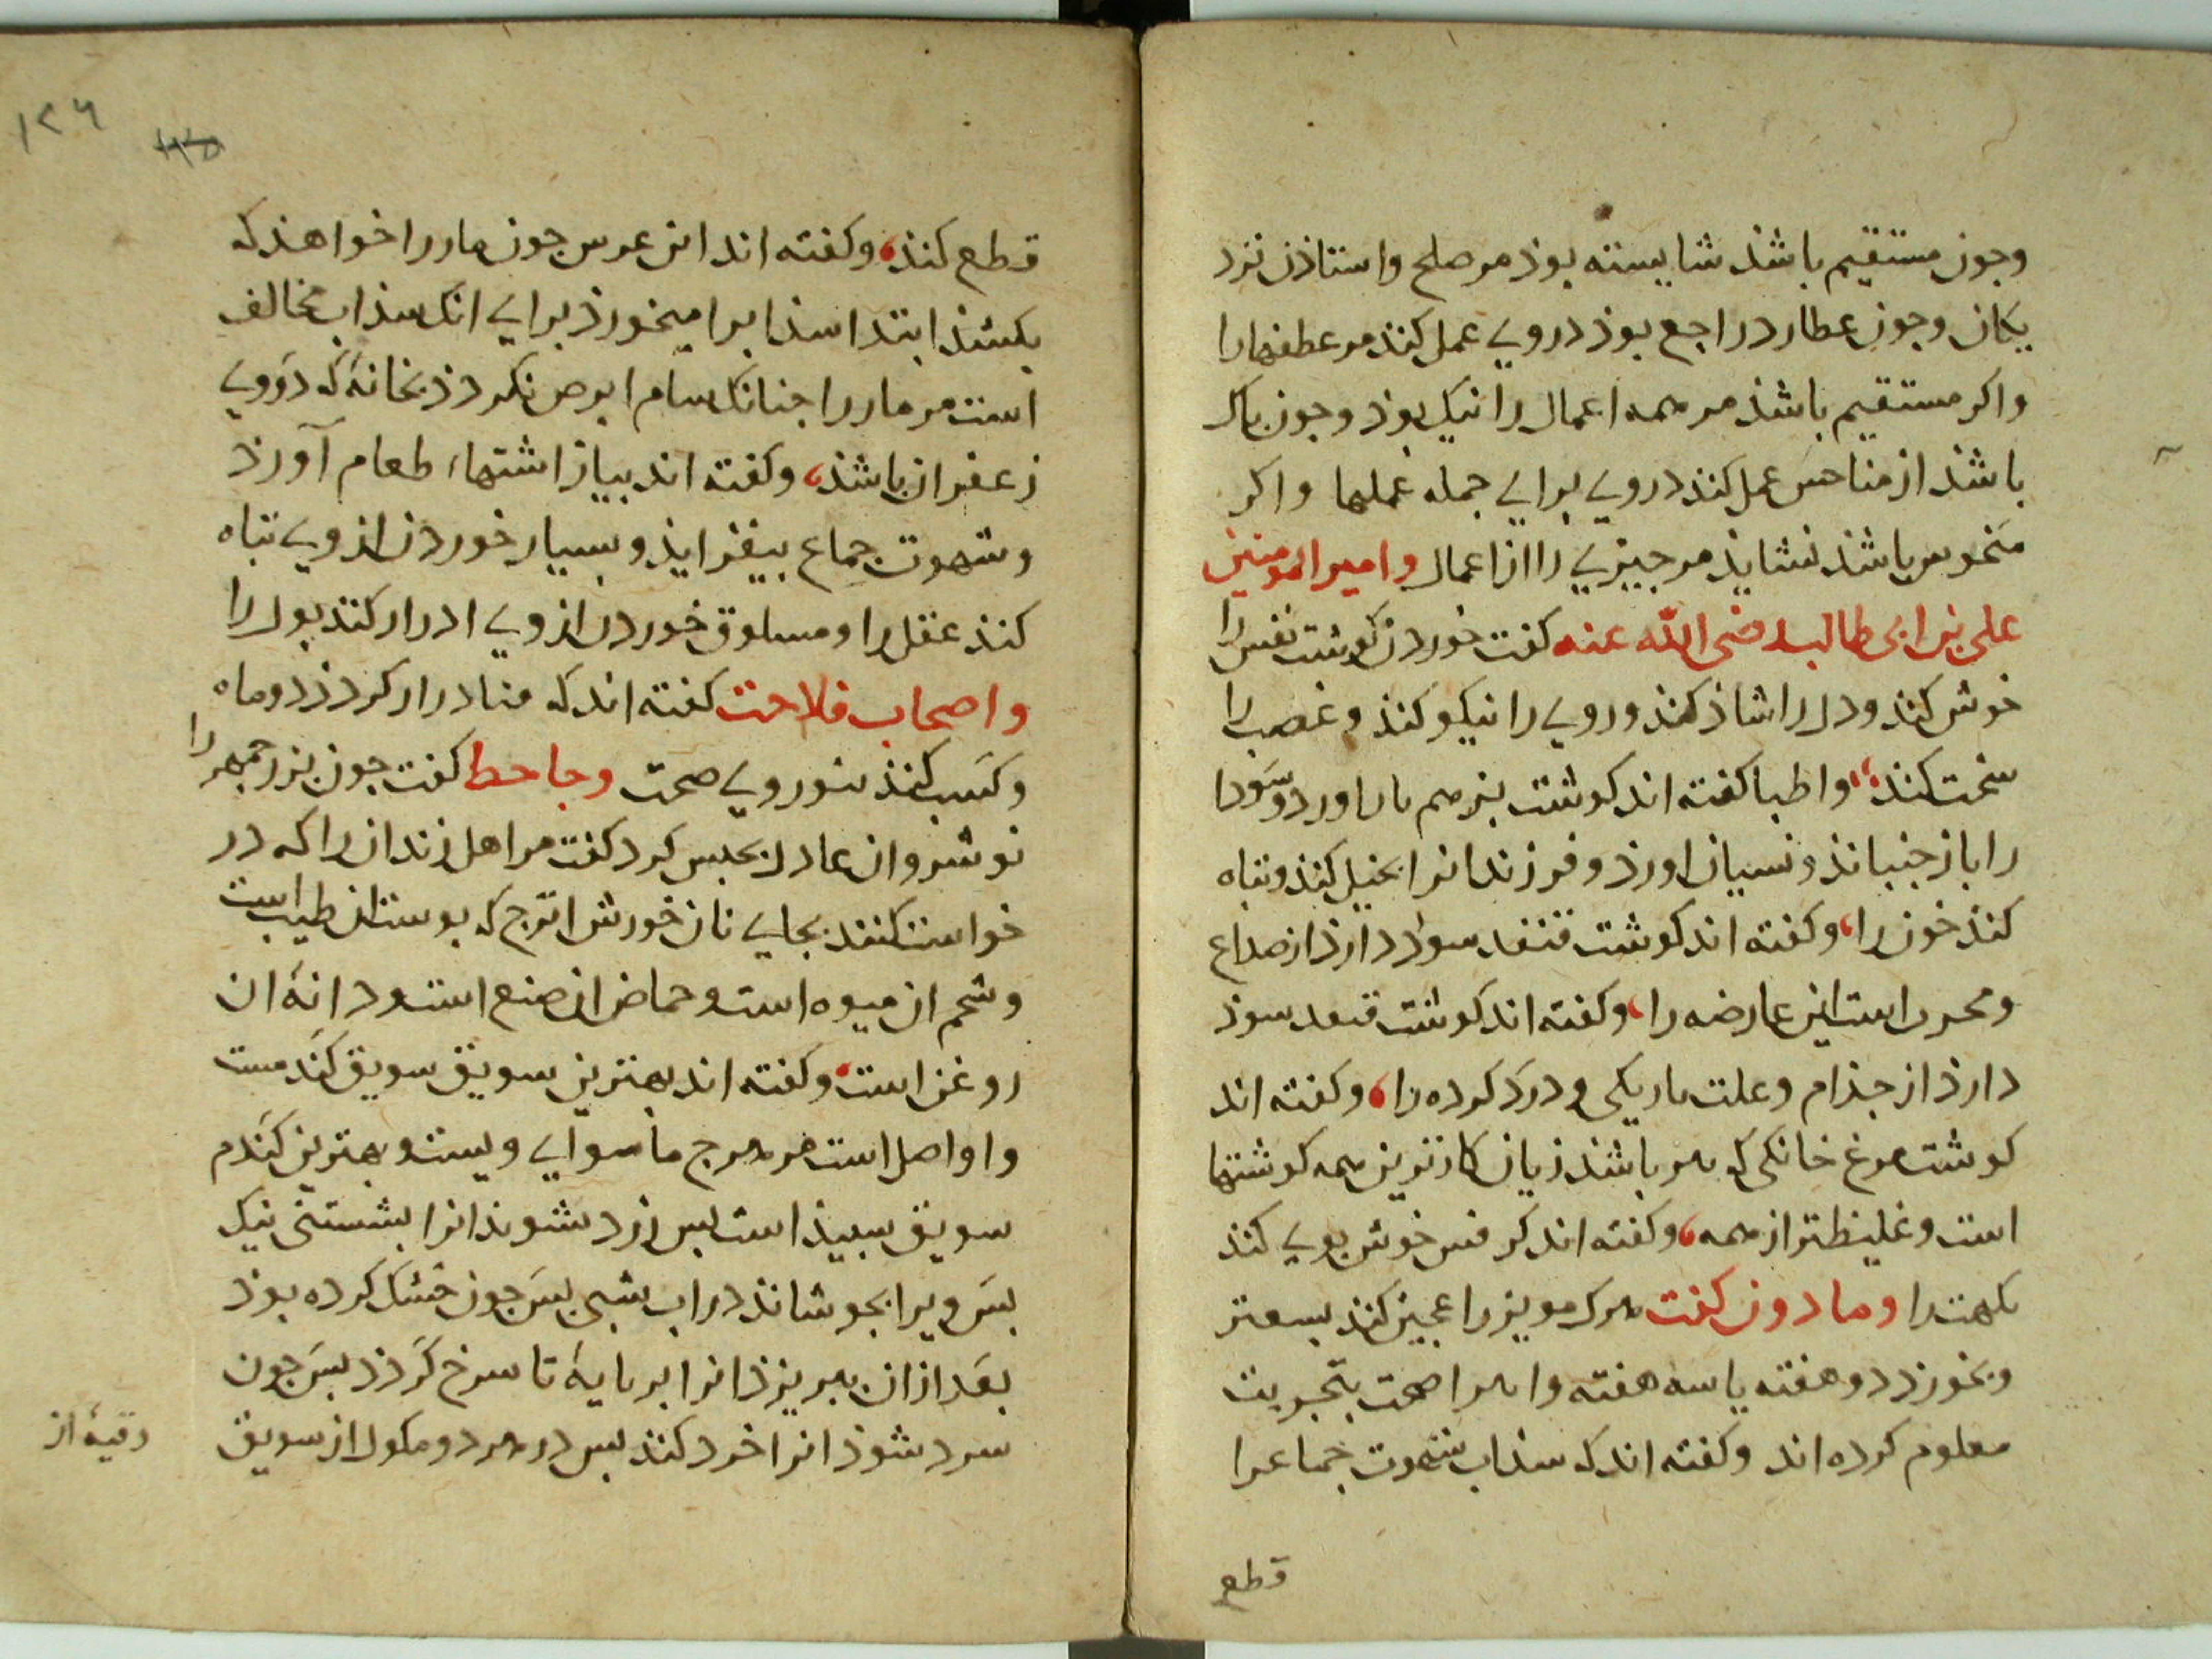 وجون مستقیم باشذ شایسته بوذ مر صلح واستاذن نزد
یکان وجون عطارد راجع بوذ در وی عمل کنند مر عطفها را
واکر مستقیم باشذ مر همه اعمال را نیک بوذ وجون پاک
باشذ از مناحس عمل کنند در وی برای جمله عملها واکر
منحوس باشذ نشایذ مر جیزی را از اعمال وامیر المومنین
علی بن ابی طالب رضی الله عنه کفت خوردن کوشت نفس را
خوش کند ودل را شاذ کند وروی را نیکو کند وغضب را
سخت کند، واطبا کفته اند کوشت بز هم اورد وسودا
را باز جنباند ونسیان اورذ وفرزندانرا بخیل کند وتباه
کند خون را، وکفته اند کوشت قنفد سوذ دارذ از صداع
ومجرب است این عارضه را، وکفته اند کوشت قنفد سوذ
دارذ از جذام وعلت باریکی ودرد کرده را، وکفته اند
کوشت مرغ خانکی که پیر باشذ زیان کارترین همه کوشتها
است وغلیظتر از همه، وکفته اند کرفس خوش بوی کند
نکهت را ومادون کفت هرک مویز را عجین کند بسعتر
وبخورذ دو هفته یا سه هفته صحت بتجربت
معلوم کرده اند وکفته اند که سذاب شهوت جماعرا
قطع
۱۲۶
قطع کند، وکفته اند ابن عرس جون مار را خواهذ که
بکشذ ابتدا سذابرا میخورذ برای انک سذاب مخالف
است مر مار را جنانک سام ابرص نکردذ بخانهٔ که در وی
زعفران باشذ، وکفته اند بیاز اشتهاء طعام آورذ
وشهوت جماع بیفزایذ وبسیار خوردن از وی تباه
کنذ عقل را ومسلوق خوردن از وی ادرار کنذ بول را
واصحاب فلاحت کفته اند که کردذ در ماه
وکسب کنذ روی صحت وجاحظ کفت جون بزرجمهر را
نوشروان عادل بحبس کرد کفت مر اهل زندان را که در
خواست کنند بجای نان خورش اترج که بوست ان طیب است
وشحم ان میوه است وحماض ان صبغ است ودانهٔ ان
روغن است، وکفته اند بهترین سویق سویق کندمست
واو اصل است مر هرج ماسوای ویست وبهترین کندم
سویق سبیذ است بس ارد شوند انرا بشستنی نیک
بس ویرا بجوشانذ در اب شبی بس جون خشک کرده بوذ
بعد از ان بریزذ انرا بر تابهٔ تا سرخ کردذ بس جون
سرد شوذ انرا خرد کنذ بس در هر دو مکول از سویق
وقیهٔ از